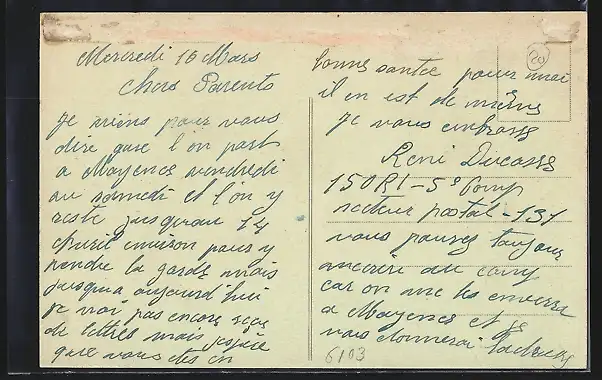 Mercredi 16 Mars
Chers Parents
Je viens pour vous
dire que l'on part
a Mayence vendredi
au samedi et l'on y
reste jusquau 14
Avril environ pour y
rendre la garde mais
jusqua aujourd'hui
je n'ai pas encore reçu
de lettres mais j'espère
que vous êtes en
bonne santée pour moi
il en est de même
Je vous embrasse
René Ducasse
150 RI - 5e Comp
secteur postal - 131
vous pouvez toujours
mecrire au camp
car on me les enverra
a Mayence et je
vous donnerai l'adresse
6103